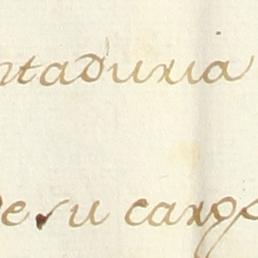 ntaduria
de su cargo